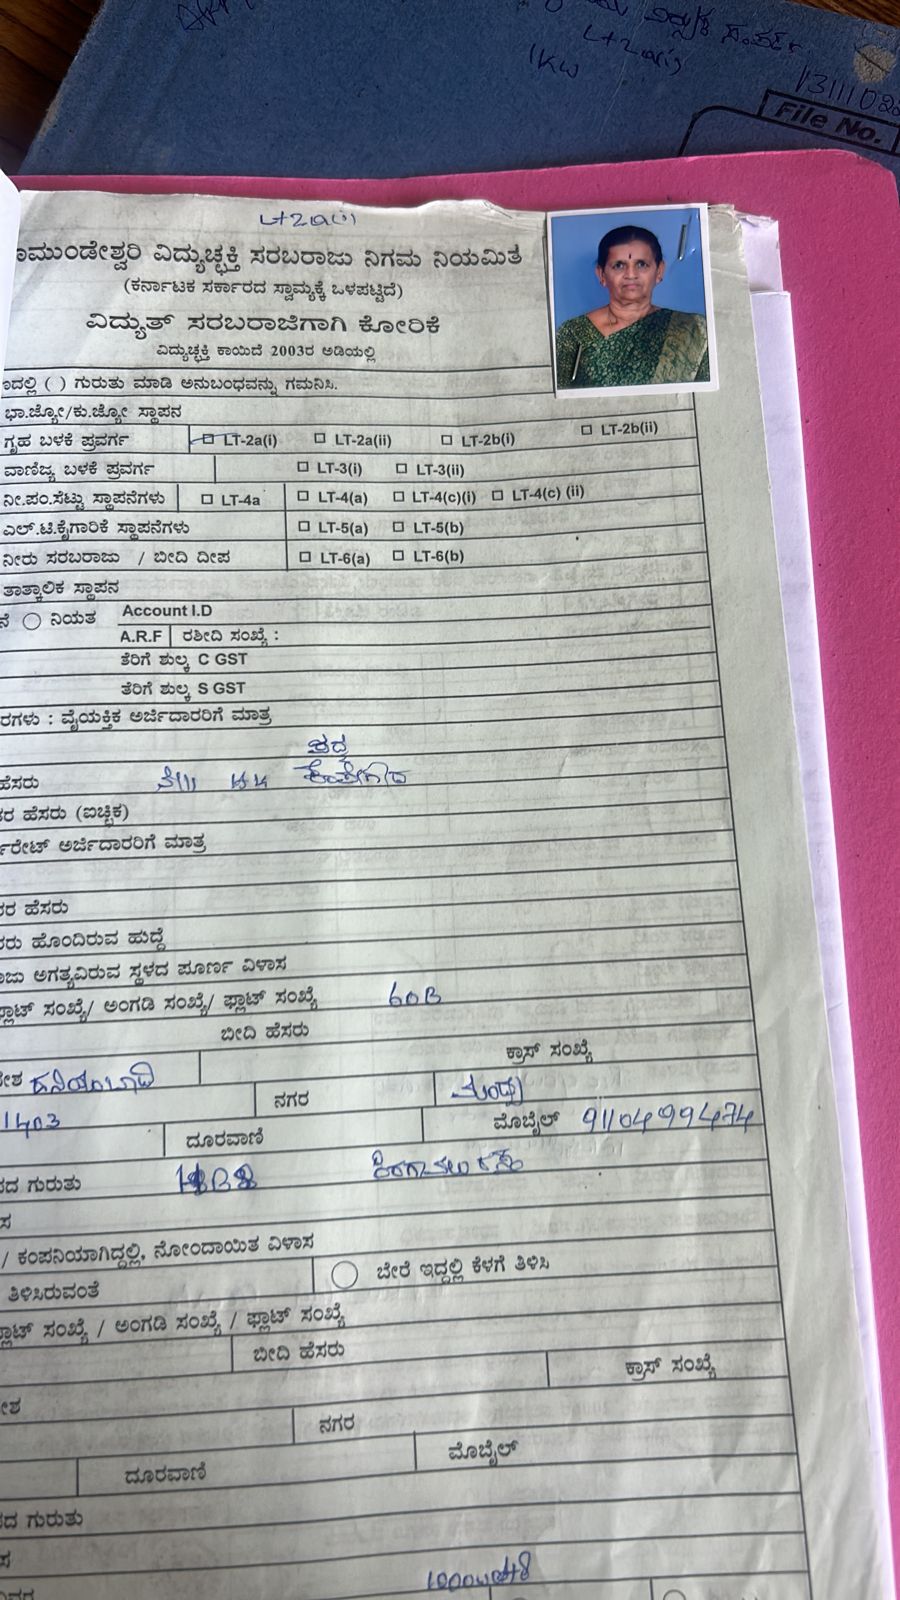 LT2a(i)
1KW
File No.
LT2a(i)
ಾಮುಂಡೇಶ್ವರಿ ವಿದ್ಯುಚ್ಛಕ್ತಿ ಸರಬರಾಜು ನಿಗಮ ನಿಯಮಿತ
(ಕರ್ನಾಟಕ ಸರ್ಕಾರದ ಸ್ವಾಮ್ಯಕ್ಕೆ ಒಳಪಟ್ಟಿದೆ)
ವಿದ್ಯುತ್ ಸರಬರಾಜಿಗಾಗಿ ಕೋರಿಕೆ
ವಿದ್ಯುಚ್ಛಕ್ತಿ ಕಾಯಿದೆ 2003ರ ಅಡಿಯಲ್ಲಿ
ಾದಲ್ಲಿ ( ) ಗುರುತು ಮಾಡಿ ಅನುಬಂಧವನ್ನು ಗಮನಿಸಿ.
ಭಾ.ಜ್ಯೋ/ಕು.ಜ್ಯೋ ಸ್ಥಾಪನ
ಗೃಹ ಬಳಕೆ ಪ್ರವರ್ಗ LT-2a(i) LT-2a(ii) LT-2b(i) LT-2b(ii)
ವಾಣಿಜ್ಯ ಬಳಕೆ ಪ್ರವರ್ಗ LT-3(i) LT-3(ii)
ನೀ.ಪಂ.ಸೆಟ್ಟು ಸ್ಥಾಪನೆಗಳು LT-4a LT-4(a) LT-4(c)(i) LT-4(c) (ii)
ಎಲ್.ಟಿ.ಕೈಗಾರಿಕೆ ಸ್ಥಾಪನೆಗಳು LT-5(a) LT-5(b)
ನೀರು ಸರಬರಾಜು / ಬೀದಿ ದೀಪ LT-6(a) LT-6(b)
ತಾತ್ಕಾಲಿಕ ಸ್ಥಾಪನ
ನೆ ನಿಯತ Account I.D
A.R.F ರಶೀದಿ ಸಂಖ್ಯೆ :
ತೆರಿಗೆ ಶುಲ್ಕ C GST
ತೆರಿಗೆ ಶುಲ್ಕ S GST
ರಗಳು : ವೈಯಕ್ತಿಕ ಅರ್ಜಿದಾರರಿಗೆ ಮಾತ್ರ
ಹೆಸರು
ರ ಹೆಸರು (ಐಚ್ಛಿಕ)
ರೇಟ್ ಅರ್ಜಿದಾರರಿಗೆ ಮಾತ್ರ
ರ ಹೆಸರು
ರು ಹೊಂದಿರುವ ಹುದ್ದೆ
ಾಜು ಅಗತ್ಯವಿರುವ ಸ್ಥಳದ ಪೂರ್ಣ ವಿಳಾಸ
ಪ್ಲಾಟ್ ಸಂಖ್ಯೆ/ ಅಂಗಡಿ ಸಂಖ್ಯೆ/ ಫ್ಲಾಟ್ ಸಂಖ್ಯೆ 60B
ಬೀದಿ ಹೆಸರು
ಕ್ರಾಸ್ ಸಂಖ್ಯೆ
ೇಶ
ನಗರ ಮಂಡ್ಯ
1403 ದೂರವಾಣಿ ಮೊಬೈಲ್ 9110499474
ದ ಗುರುತು
ಸ
/ ಕಂಪನಿಯಾಗಿದ್ದಲ್ಲಿ, ನೋಂದಾಯಿತ ವಿಳಾಸ
ತಿಳಿಸಿರುವಂತೆ ಬೇರೆ ಇದ್ದಲ್ಲಿ ಕೆಳಗೆ ತಿಳಿಸಿ
ಪ್ಲಾಟ್ ಸಂಖ್ಯೆ / ಅಂಗಡಿ ಸಂಖ್ಯೆ / ಫ್ಲಾಟ್ ಸಂಖ್ಯೆ
ಬೀದಿ ಹೆಸರು
ಕ್ರಾಸ್ ಸಂಖ್ಯೆ
ೇಶ
ನಗರ
ದೂರವಾಣಿ ಮೊಬೈಲ್
ದ ಗುರುತು
ಸ